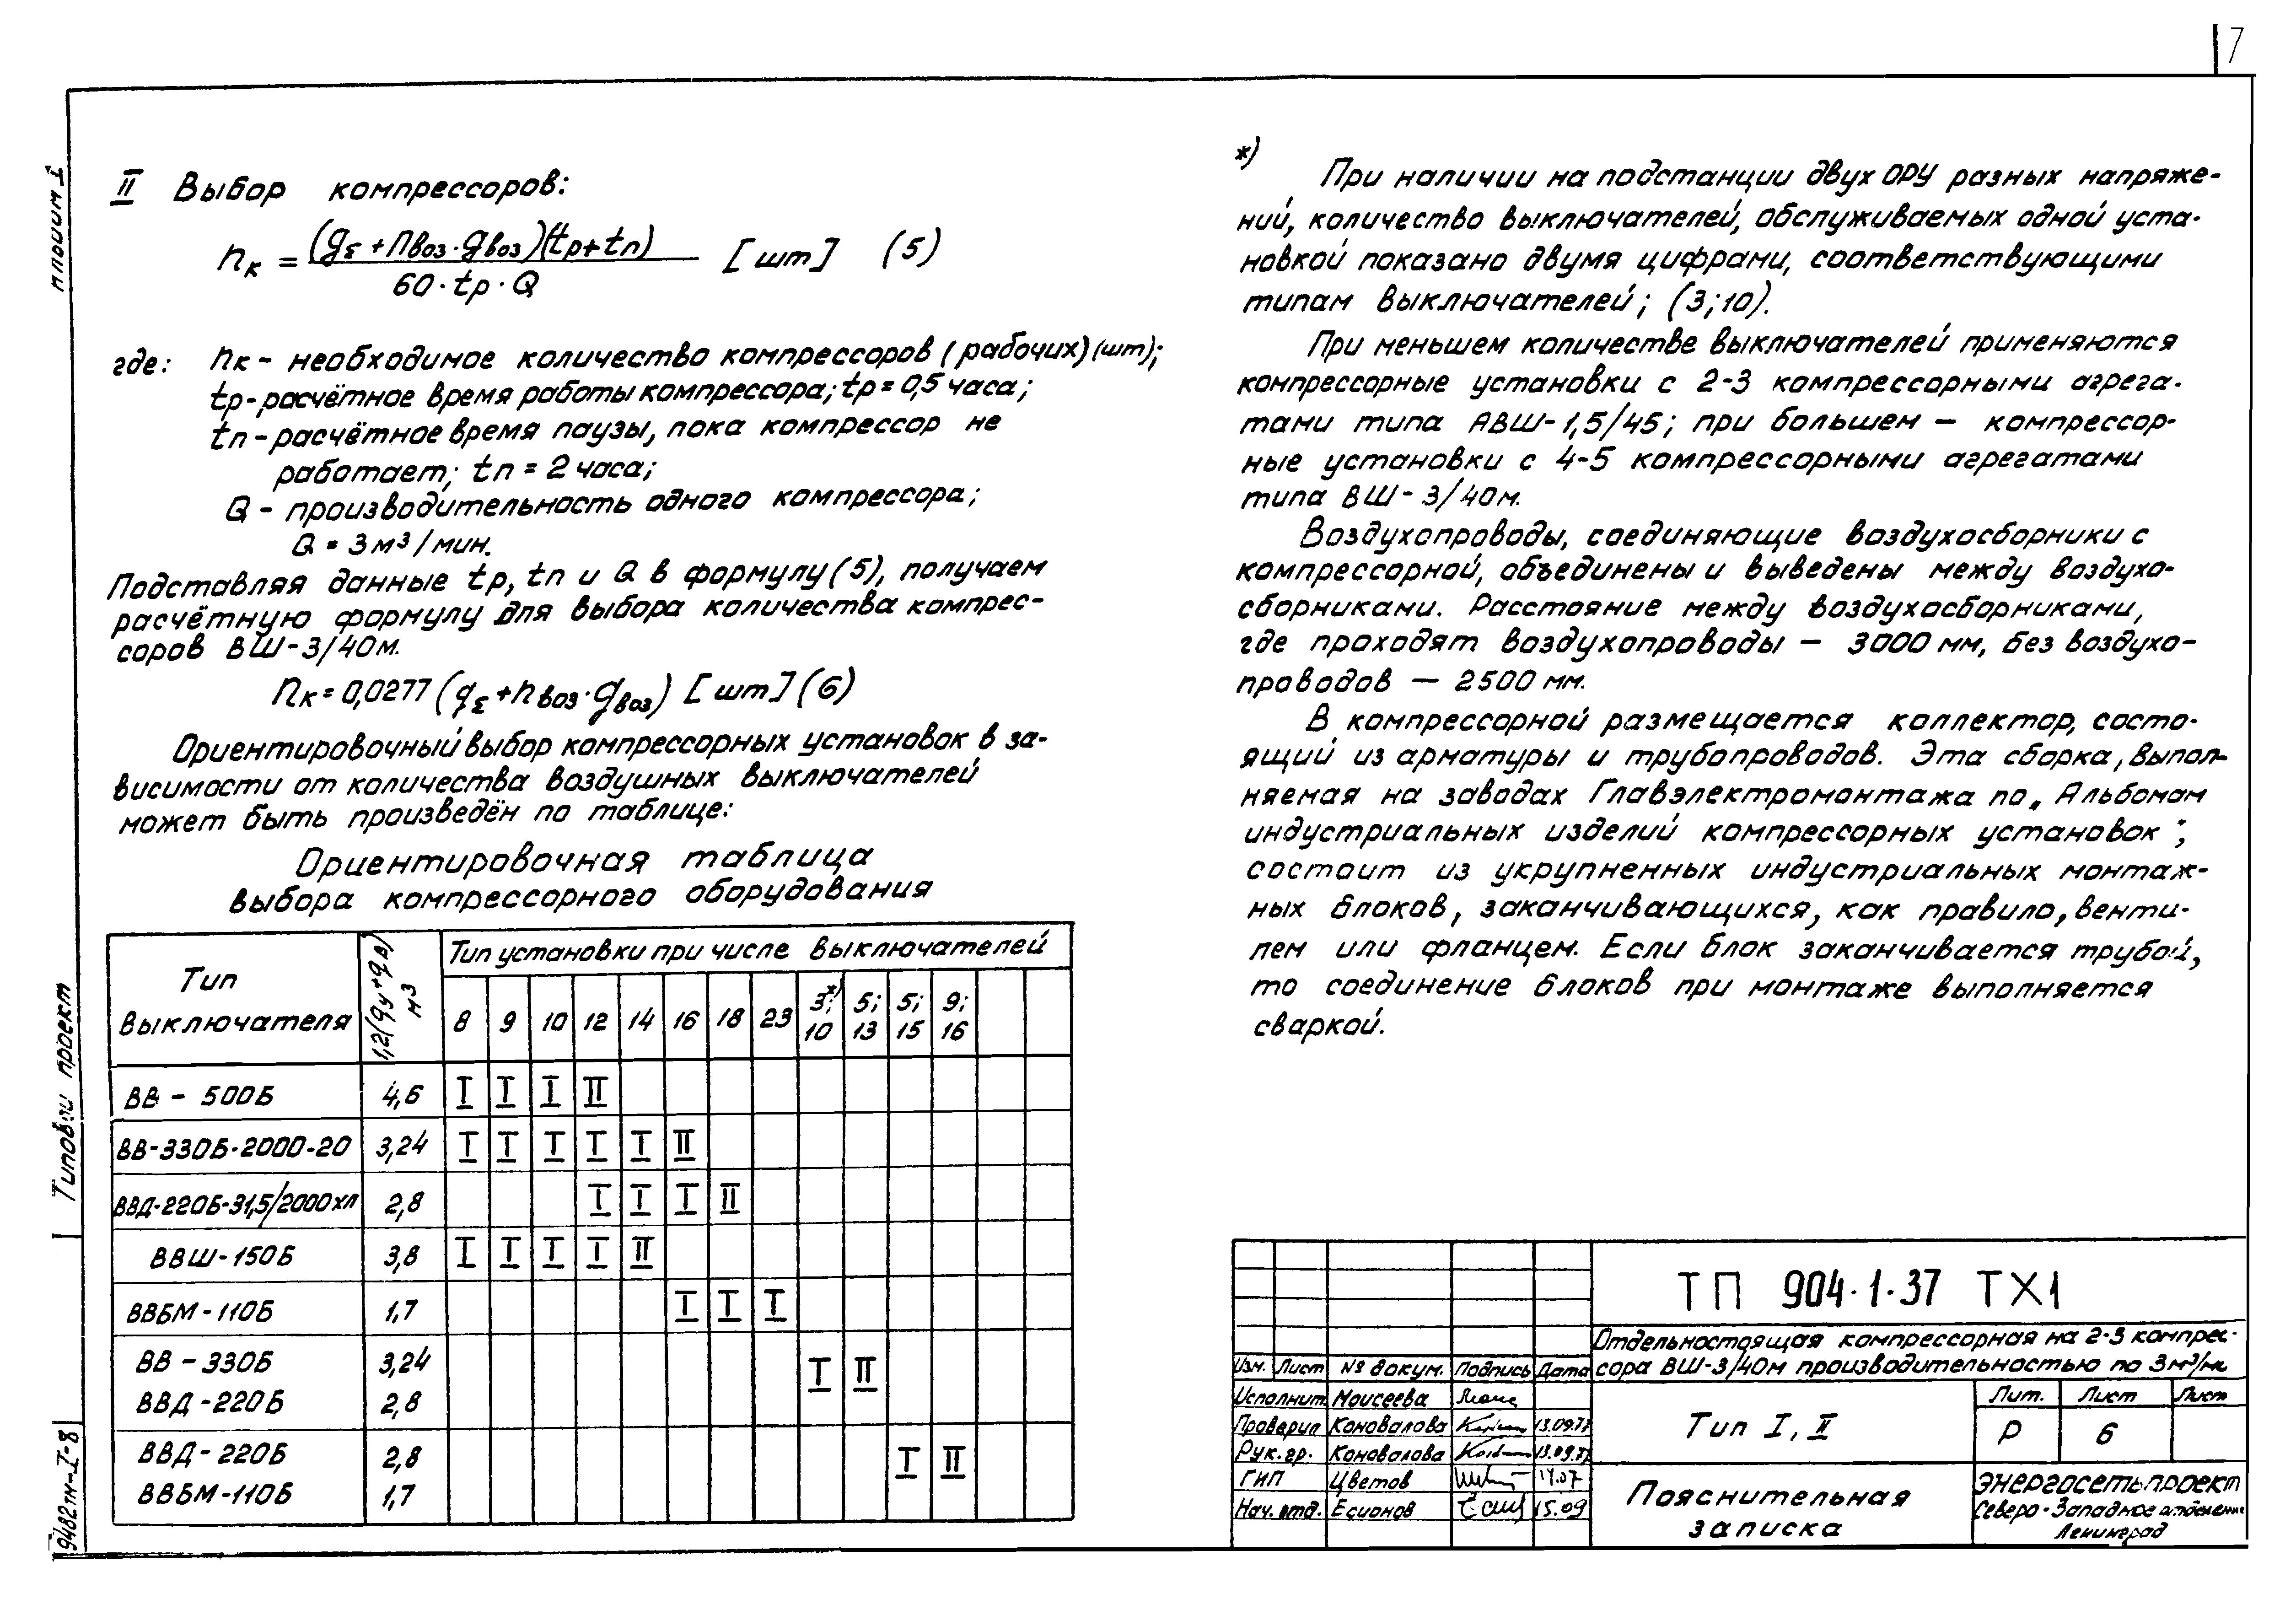 7
Альбом I
Типовой проект
9482тм-I-8
II Выбор компрессоров:
nк = (gΣ + nвоз · gвоз)(tр + tп) / 60 · tр · Q [шт] (5)
где: nк - необходимое количество компрессоров (рабочих) (шт);
tр - расчётное время работы компрессора; tр = 0,5 часа;
tп - расчётное время паузы, пока компрессор не
работает; tп = 2 часа;
Q - производительность одного компрессора;
Q = 3 м³/мин.
Подставляя данные tр, tп и Q в формулу (5), получаем
расчётную формулу для выбора количества компрес-
соров ВШ-3/40м.
nк = 0,0277 (gΣ + nвоз · gвоз) [шт] (6)
Ориентировочный выбор компрессорных установок в за-
висимости от количества воздушных выключателей
может быть произведён по таблице:
Ориентировочная таблица
выбора компрессорного оборудования
Тип выключателя | 1,2(gу+gв) м³ | Тип установки при числе выключателей
8 | 9 | 10 | 12 | 14 | 16 | 18 | 23 | 3;*) 10 | 5; 13 | 5; 15 | 9; 16
ВВ - 500Б | 4,6 | I | I | I | II
ВВ-330Б-2000-20 | 3,24 | I | I | I | I | I | II
ВВД-220Б-31,5/2000ХЛ | 2,8 | I | I | I | II
ВВШ-150Б | 3,8 | I | I | I | I | II
ВВБМ-110Б | 1,7 | I | I | I
ВВ - 330Б | 3,24 | I | II
ВВД - 220Б | 2,8
ВВД - 220Б | 2,8 | I | II
ВВБМ-110Б | 1,7
*)
При наличии на подстанции двух ОРУ разных напряже-
ний, количество выключателей, обслуживаемых одной уста-
новкой показано двумя цифрами, соответствующими
типам выключателей; (3;10).
При меньшем количестве выключателей применяются
компрессорные установки с 2-3 компрессорными агрега-
тами типа АВШ-1,5/45; при большем — компрессор-
ные установки с 4-5 компрессорными агрегатами
типа ВШ-3/40м.
Воздухопроводы, соединяющие воздухосборники с
компрессорной, объединены и выведены между воздухо-
сборниками. Расстояние между воздухосборниками,
где проходят воздухопроводы — 3000 мм, без воздухо-
проводов — 2500 мм.
В компрессорной размещается коллектор, состо-
ящий из арматуры и трубопроводов. Эта сборка, выпол-
няемая на заводах Главэлектромонтажа по „Альбомам
индустриальных изделий компрессорных установок";
состоит из укрупненных индустриальных монтаж-
ных блоков, заканчивающихся, как правило, венти-
лем или фланцем. Если блок заканчивается трубой,
то соединение блоков при монтаже выполняется
сваркой.
ТП 904-1-37 ТХ1
Отдельностоящая компрессорная на 2-3 компрес-
сора ВШ-3/40м производительностью по 3м³/мин
Изм. | Лист | № докум. | Подпись | Дата
Исполнит. | Моисеева
Проверил | Коновалова | 13.09.77
Рук. гр. | Коновалова | 13.09.77
ГИП | Цветов | 14.07
Нач. отд. | Есионов | 15.09
Тип I, II
Лит. | Лист | Лист
Р | 6
Пояснительная
записка
Энергосетьпроект
Северо-Западное отделение
Ленинград